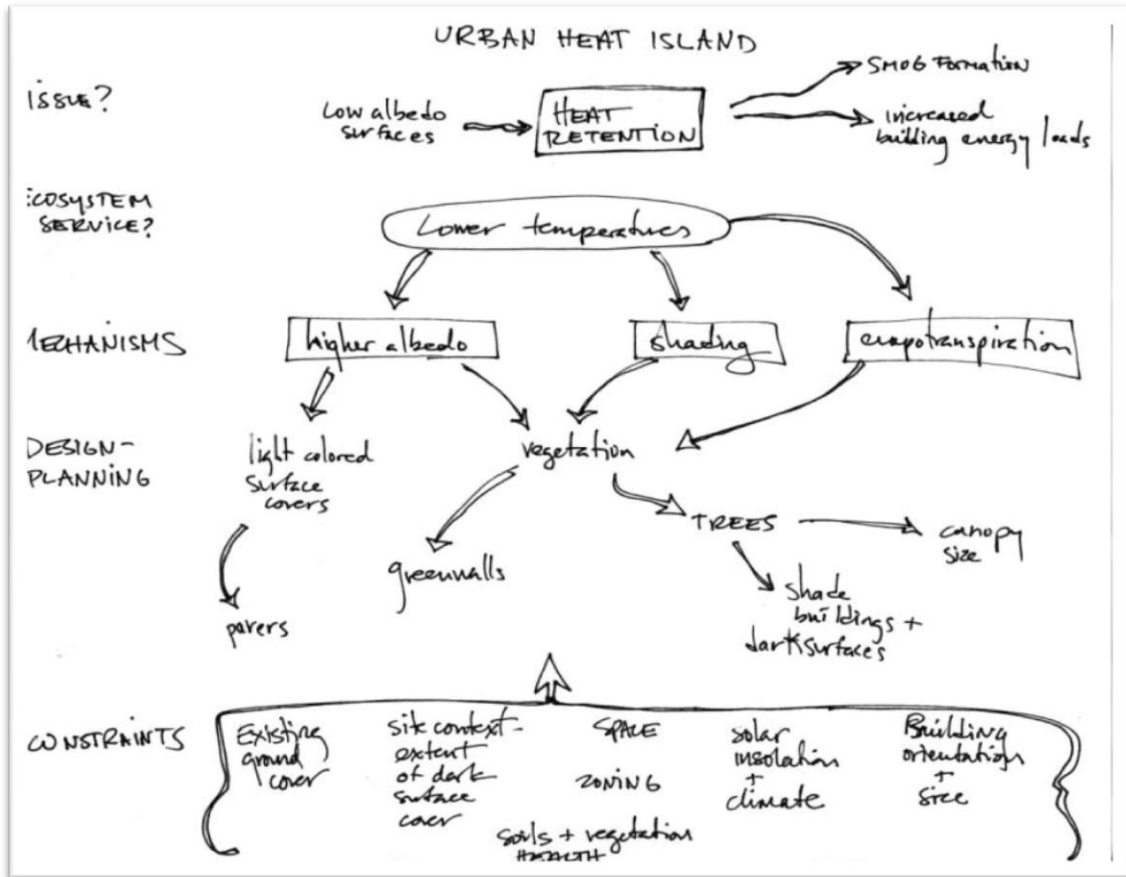 URBAN HEAT ISLAND
ISSUE?
Low albedo
surfaces
HEAT
RETENTION
SMOG FORMATION
increased
building energy loads
ECOSYSTEM
SERVICE?
Lower temperatures
MECHANISMS
higher albedo
shading
evapotranspiration
DESIGN-
PLANNING
light colored
surface
covers
vegetation
TREES
canopy
size
greenwalls
shade
buildings +
dark surfaces
pavers
CONSTRAINTS
Existing
ground
cover
site context -
extent
of dark
surface
cover
SPACE
ZONING
soils + vegetation
HEALTH
solar
insolation
+
climate
Building
orientation
+
size